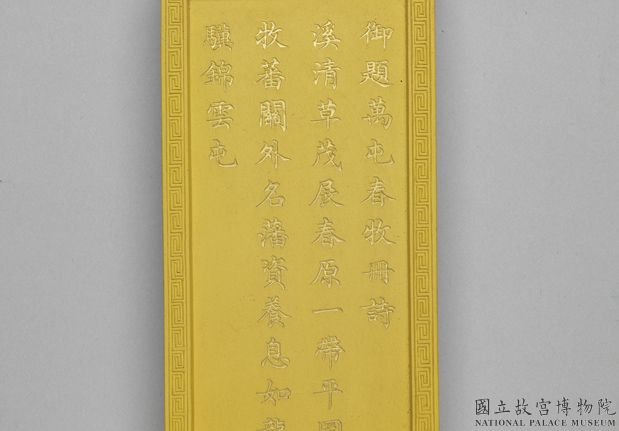 御題萬屯春牧冊詩
溪清草茂展春原一帶平
牧蕃關外名藩資養息如
驥錦雲屯
國立故宮博物院
NATIONAL PALACE MUSEUM